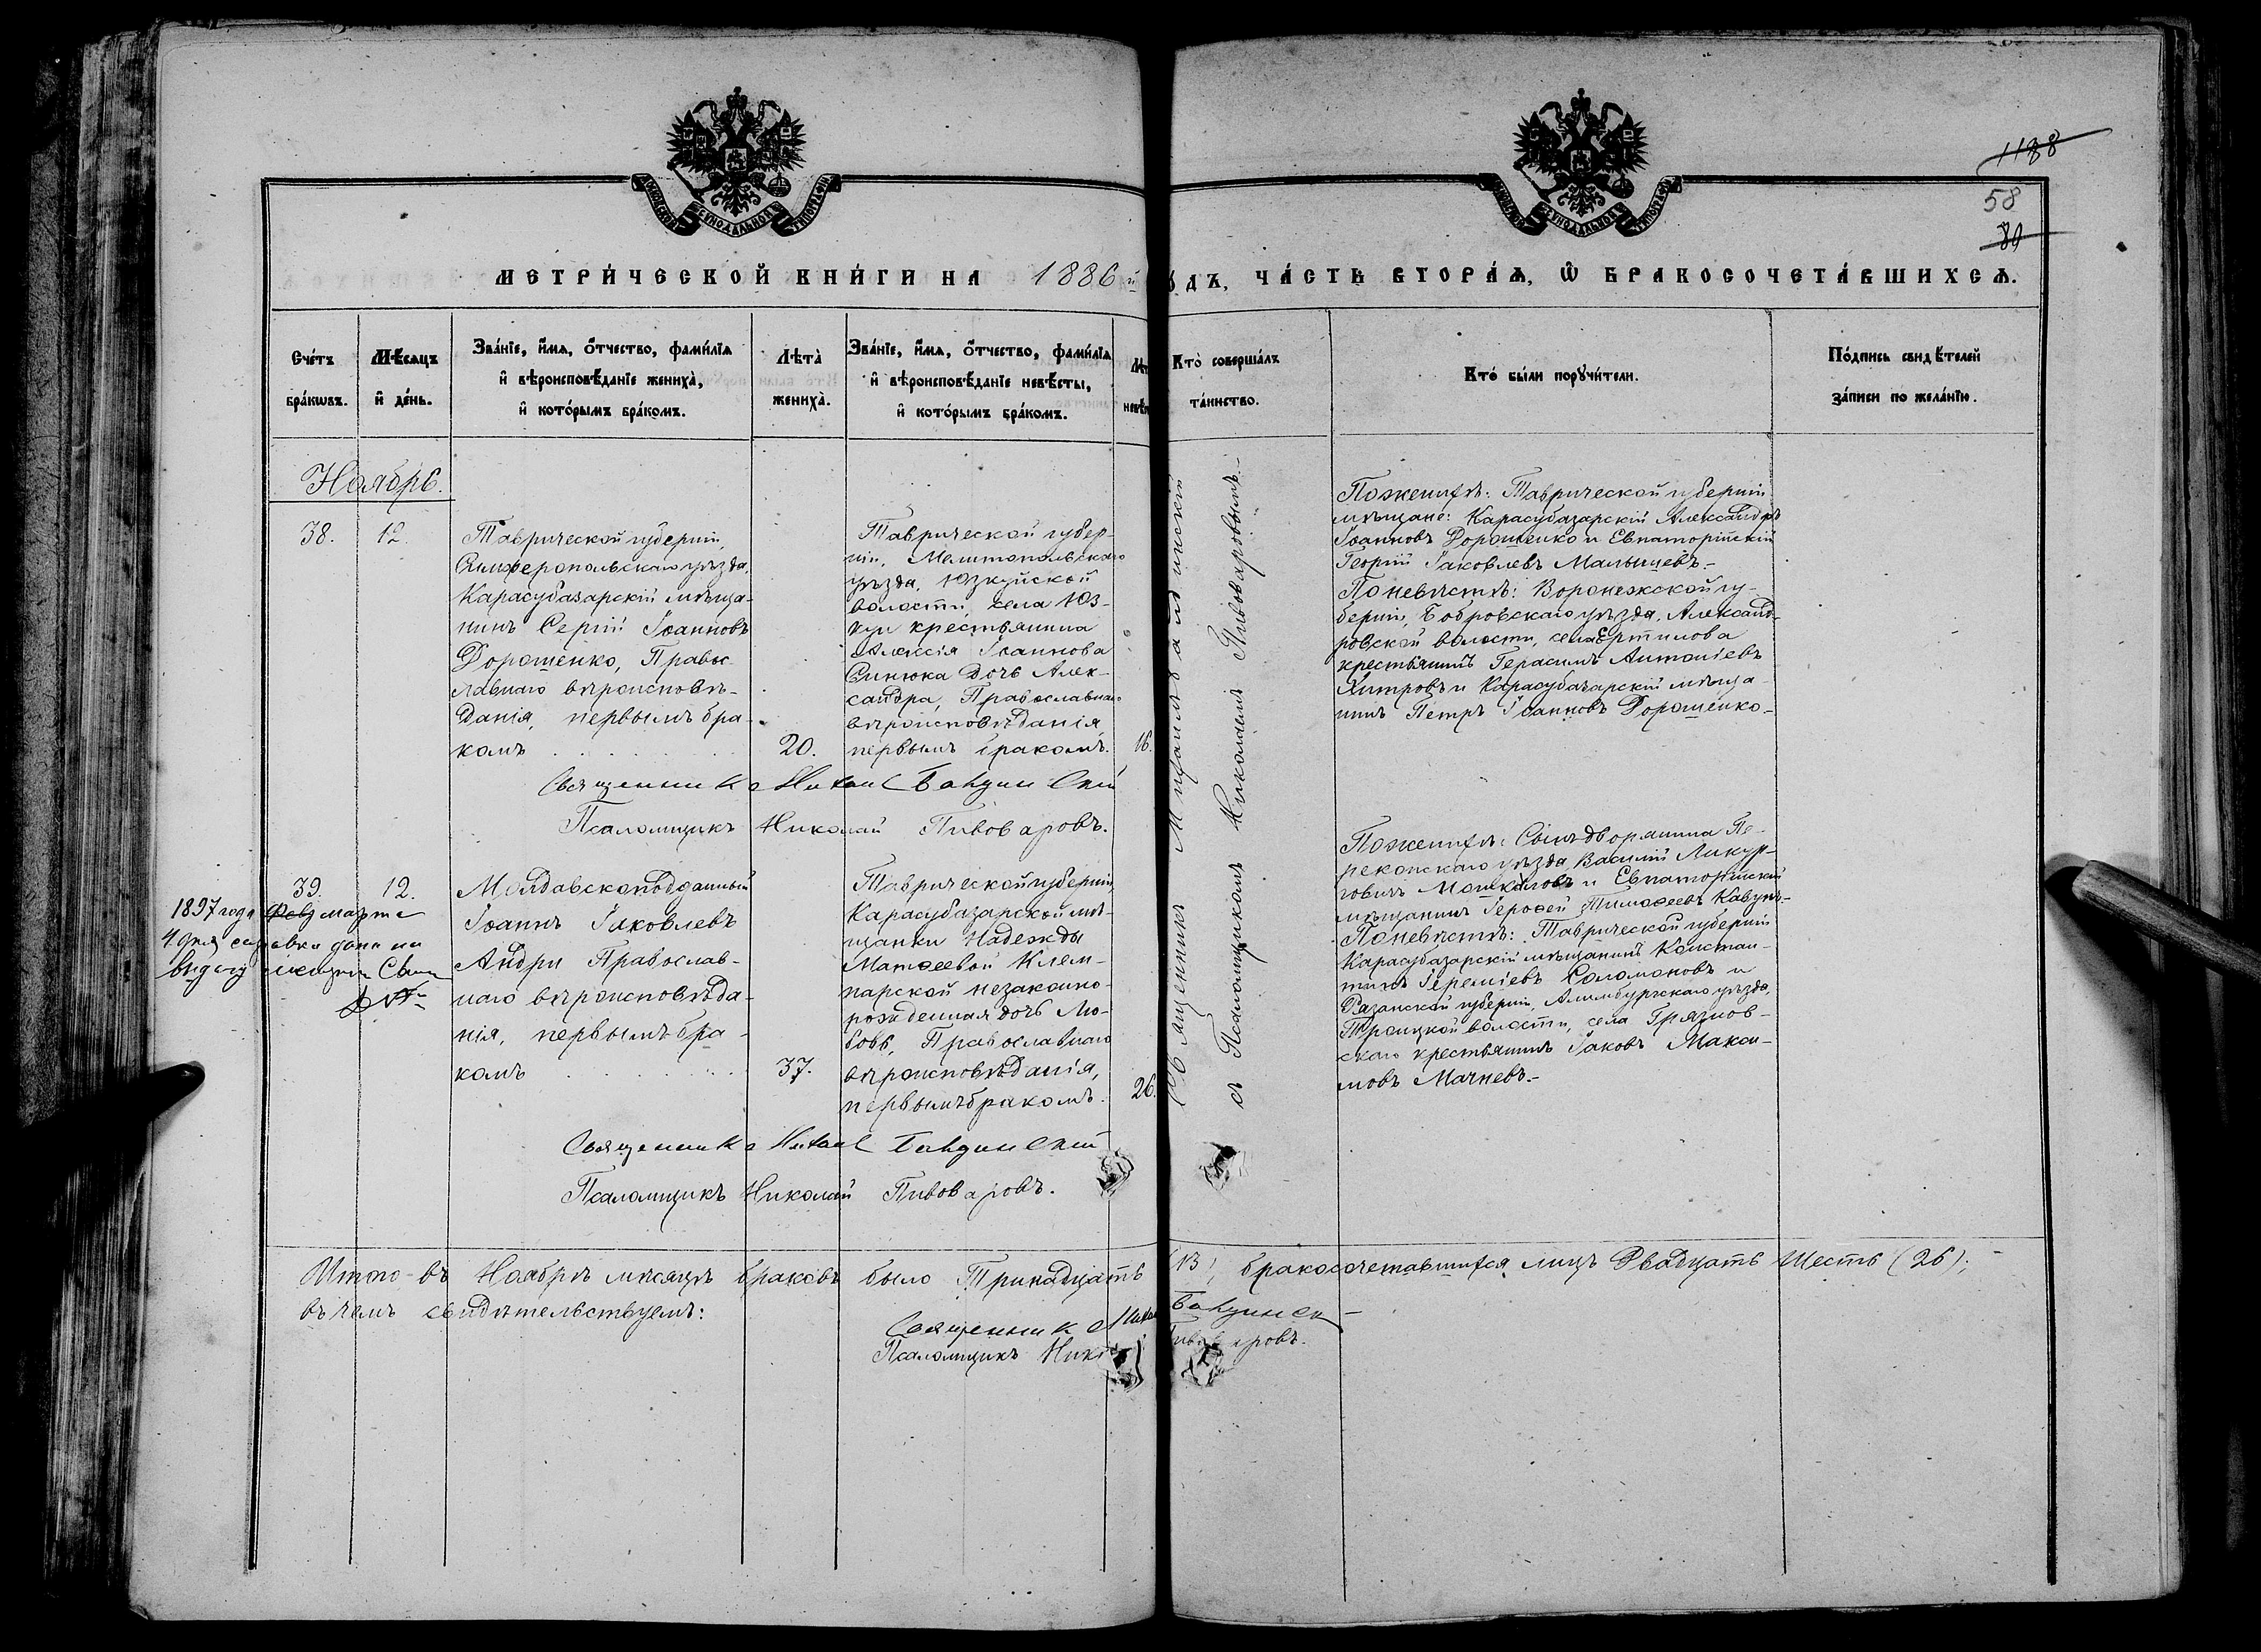 1188
58
89
МЕТРИ́ЧЕСКОЙ КНИ́ГИ НА 1886 й
ГО́ДЪ, ЧА́СТЬ ВТОРА́Я, Ѽ БРАКОСОЧЕТА́ВШИХСЯ.
Сче́тъ бра́кѡвъ.
Мѣ́сяцъ и҆ де́нь.
Зва́нїе, и҆́мя, ѻ҆́тчество, фами́лїя
и҆ вѣроисповѣ́данїе жениха̀,
и҆ кото́рымъ бра́комъ.
Лѣта̀ жениха̀.
Зва́нїе, и҆́мя, ѻ҆́тчество, фами́лїя
и҆ вѣроисповѣ́данїе невѣ́сты,
и҆ кото́рымъ бра́комъ.
Кто̀ соверша́лъ
та́инство.
Кто̀ бы́ли порꙋчи́тели.
По́дпись свидѣ́телей
за́писи по жела́нїю.
Ноябрь.
38.
12.
Таврической губерніи,
Симферопольскаго уѣзда,
Карасубазарскій мѣща-
нинъ Сергій Іоанновъ
Дорошенко, Правос-
лавнаго вѣроисповѣ-
данія, первымъ бра-
комъ
20.
Таврической губер-
ніи, Мелитопольскаго
уѣзда, Юзкуйской
волости, села Юз-
куи крестьянина
Алексія Іоаннова
Синюка дочь Алек-
сандра, Православнаго
вѣроисповѣданія,
первымъ бракомъ.
16.
Священникъ Михаилъ
съ Псаломщикомъ Николаемъ Пивоваровымъ.-
Поженихѣ: Таврической губерніи
мѣщане: Карасубазарскій Александръ
Іоанновъ Дорошенко и Евпаторійскій
Георгій Іаковлевъ Малышевъ.-
Поневѣстѣ: Воронежской гу-
берніи, Бобровскаго уѣзда, Александ-
ровской волости, села Ертилова
крестьянинъ Герасимъ Антоніевъ
Хитровъ и Карасубазарскій мѣща-
нинъ Петръ Іоанновъ Дорошенко-
Священникъ Михаил
Псаломщикъ Николай Пивоваровъ.
39.
12.
1897 года марта
4 дня справка дана на
выдачу
Молдавскоподданный
Іоаннъ Іаковлевъ
Андри Православ-
наго вѣроисповѣда-
нія, первымъ бра-
комъ
37.
Таврической губерніи,
Карасубазарской мѣ-
щанки Надежды
Матѳеевой Клем-
парской незаконно-
рожденная дочь Лю-
бовь, Православнаго
вѣроисповѣданія,
первымъ бракомъ.
26.
Поженихѣ: Сынъ дворянина Пе-
рекопскаго уѣзда Василій Ликур-
говичъ и Евпаторійскій
мѣщанинъ Іероѳей Тимоѳеевъ Кавунъ-
Поневѣстѣ: Таврической губерніи
Карасубазарскій мѣщанинъ Констан-
тинъ Іереміевъ Соломоновъ и
Рязанской губерніи, уѣзда,
Троицкой волости, села Грязнов-
скаго крестьянинъ Іаковъ Макси-
мовъ Мачневъ.-
Священникъ Михаил
Псаломщикъ Николай Пивоваровъ.
Итого въ Ноябрѣ мѣсяцѣ браковъ было Тринадцать (13), бракосочетавшихся лицъ Двадцать Шесть (26);
въ чемъ свидѣтельствуемъ:
Священник
Псаломщикъ Пивоваровъ.